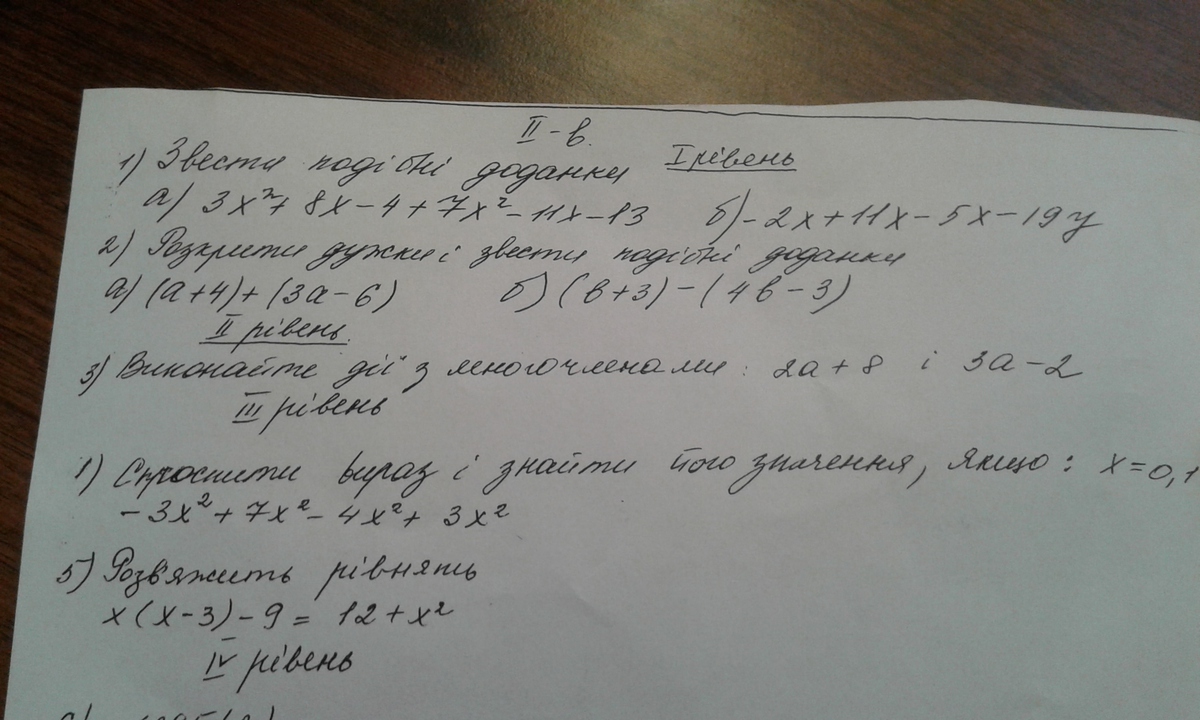 II - в.
I рівень
1) Звести подібні доданки
а) 3x² + 8x - 4 + 7x² - 11x - 13 б) - 2x + 11x - 5x - 19y
2) Розкрити дужки і звести подібні доданки
а) (а + 4) + (3а - 6) б) (в + 3) - (4в - 3)
II рівень.
3) Виконайте дії з многочленами: 2а + 8 і 3а - 2
III рівень
1) Спростити вираз і знайти його значення, якщо: x = 0,1
- 3x² + 7x² - 4x² + 3x²
5) Розвяжить рівнять
x(x - 3) - 9 = 12 + x²
IV рівень